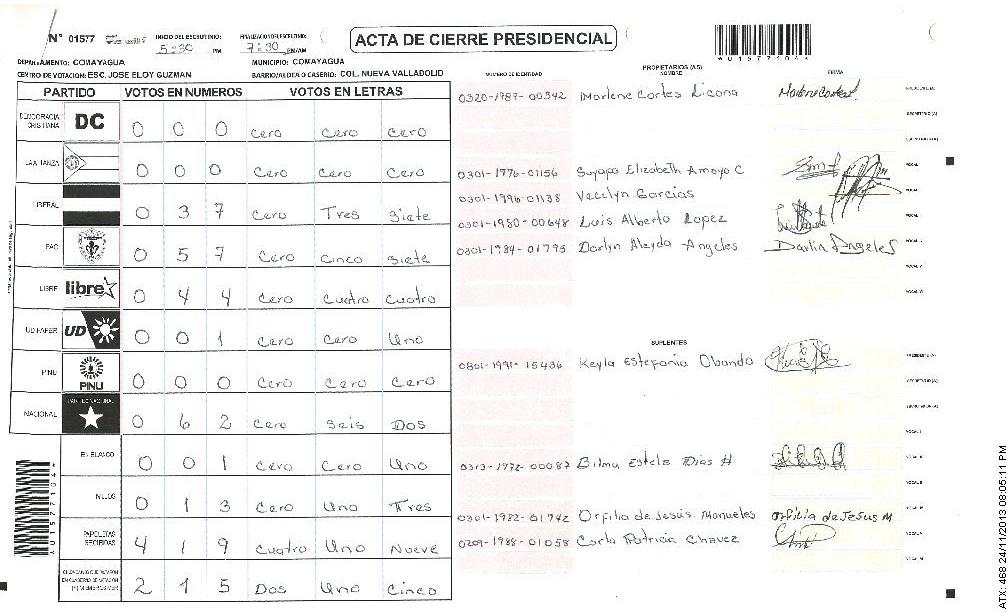 N° 01577 INICIO DEL ESCRUTINIO: 5:30 PM FINALIZACION DEL ESCRUTINIO: 7:30 PM/AM
ACTA DE CIERRE PRESIDENCIAL
DEPARTAMENTO: COMAYAGUA MUNICIPIO: COMAYAGUA
CENTRO DE VOTACION: ESC. JOSE ELOY GUZMAN BARRIO/ALDEA O CASERIO: COL. NUEVA VALLADOLID
A01577104*
NUMERO DE IDENTIDAD PROPIETARIOS (AS) NOMBRE FIRMA
PARTIDO VOTOS EN NUMEROS VOTOS EN LETRAS
DEMOCRACIA CRISTIANA DC 0 0 0 Cero Cero Cero
LA ALIANZA 0 0 0 Cero Cero Cero
LIBERAL 0 3 7 Cero Tres Siete
PAC 0 5 7 Cero Cinco Siete
LIBRE libre 0 4 4 Cero Cuatro Cuatro
UD FAPER UD 0 0 1 Cero Cero Uno
PINU PINU 0 0 0 Cero Cero Cero
NACIONAL PARTIDO NACIONAL 0 6 2 Cero Seis Dos
EN BLANCO 0 0 1 Cero Cero Uno
NULOS 0 1 3 Cero Uno Tres
PAPELETAS RECIBIDAS 4 1 9 Cuatro Uno Nueve
CIUDADANOS QUE VOTARON EN CUADERNO DE VOTACION (+) MIEMBROS MER 2 1 5 Dos Uno Cinco
0320-1987-00342 Marlene Cortes Licona Marlene Cortes PRESIDENTE (A)
SECRETARIO (A)
ESCRUTADOR (A)
0301-1776-01156 Suyapa Elizabeth Amaya C VOCAL
0301-1996-01138 Yecelyn Garcias VOCAL
0301-1980-00648 Luis Alberto Lopez VOCAL
0301-1984-01795 Darlyn Aleyda Angeles Darlin Angeles VOCAL
VOCAL V
VOCAL VI
SUPLENTES
0801-1991-15436 Keyla Estefania Obando PRESIDENTE (A)
SECRETARIO (A)
ESCRUTADOR (A)
VOCAL I
0313-1972-00087 Bilma Estela Dias H VOCAL II
VOCAL III
0301-1982-01742 Orfilia de Jesús Manueles Orfilia de Jesus M VOCAL IV
0209-1988-01058 Carla Patricia Chavez VOCAL V
VOCAL VI
A01577104*
ATX: 468 24/11/2013 08:05:11 PM